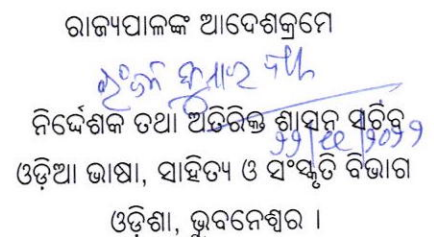 ରାଜ୍ୟପାଳଙ୍କ ଆଦେଶକ୍ରମେ
ନିର୍ଦ୍ଦେଶକ ତଥା ଅତିରିକ୍ତ ଶାସନ ସଚିବ
ଓଡ଼ିଆ ଭାଷା, ସାହିତ୍ୟ ଓ ସଂସ୍କୃତି ବିଭାଗ
ଓଡ଼ିଶା, ଭୁବନେଶ୍ୱର ।